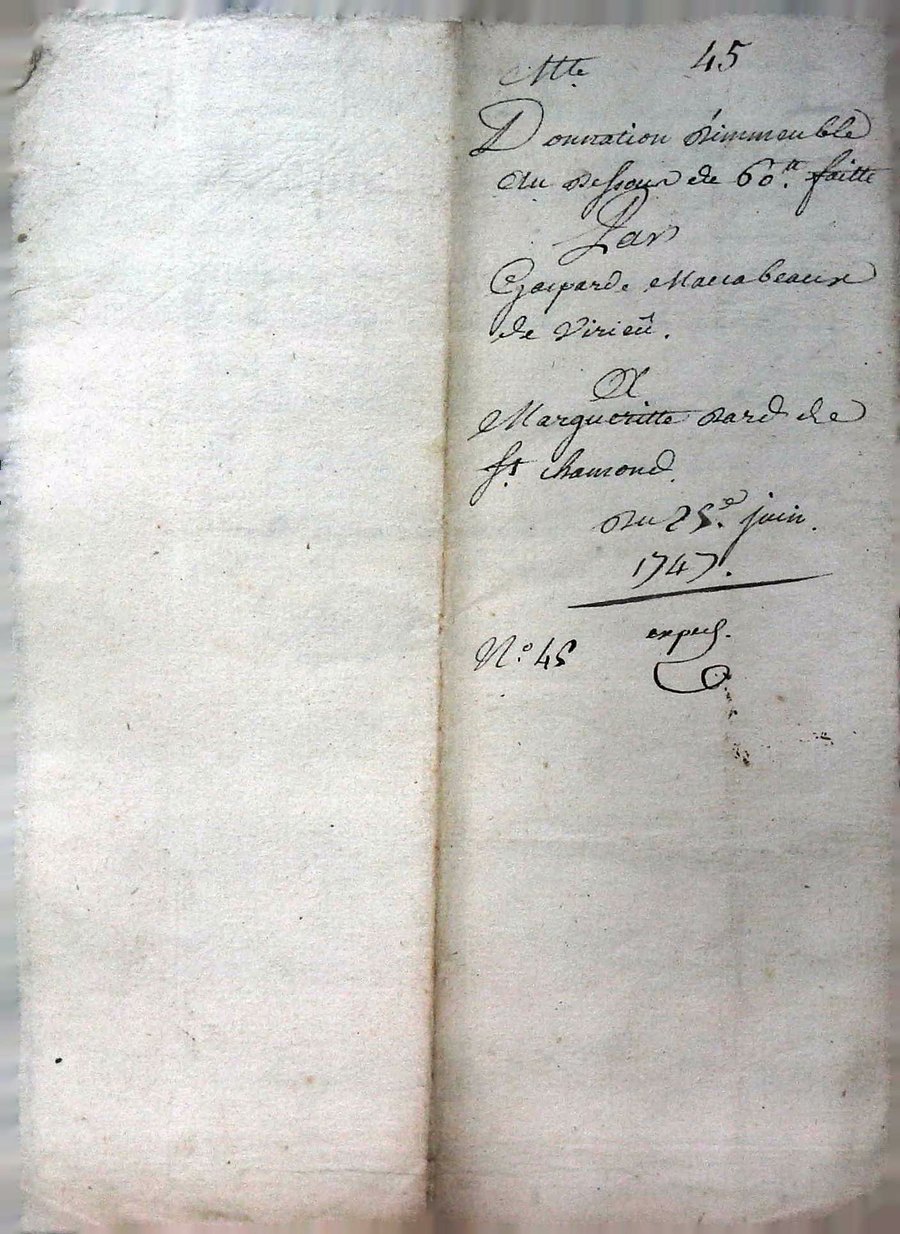 45
Donnation d'immeuble
au dessous de 60.ᵗᵗ faitte
Par
Gaspard Maccabeaux
de Virieü.
A
Margueritte dard de
Sᵗ. chamond.
du 25.ᵉ juin.
1747.
exped.
N.º 45